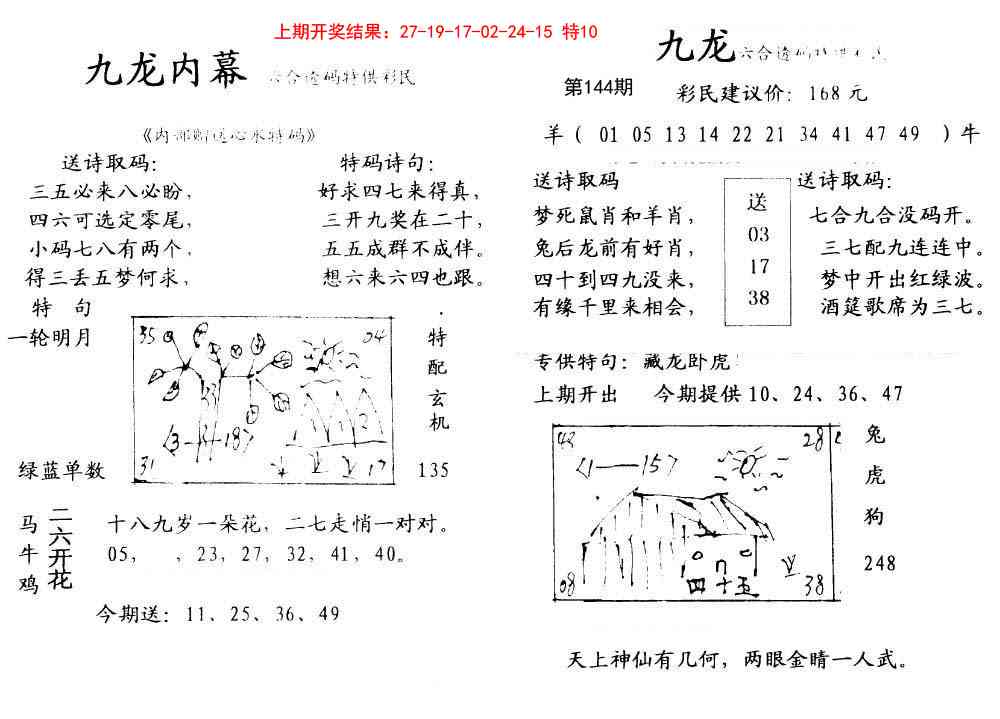 上期开奖结果：27-19-17-02-24-15 特10
九龙内幕 六合透码特供彩民
《内部赠送心水特码》
送诗取码：
三五必来八必盼，
四六可选定零尾，
小码七八有两个，
得三丢五梦何求，
特 句
一轮明月
绿蓝单数
特码诗句：
好求四七来得真，
三开九奖在二十，
五五成群不成伴。
想六来六四也跟。
35
04
31
17
特配玄机
135
马牛鸡
二六开花
十八九岁一朵花，二七走悄一对对。
05， ，23，27，32，41，40。
今期送：11、25、36、49
九龙 六合透码特供彩民
第144期
彩民建议价：168元
羊（ 01 05 13 14 22 21 34 41 47 49 ）牛
送诗取码
梦死鼠肖和羊肖，
兔后龙前有好肖，
四十到四九没来，
有缘千里来相会，
送
03
17
38
送诗取码：
七合九合没码开。
三七配九连连中。
梦中开出红绿波。
酒筵歌席为三七。
专供特句：藏龙卧虎
上期开出 今期提供10、24、36、47
42
28
08
四十五
38
兔
虎
狗
248
天上神仙有几何，两眼金睛一人武。